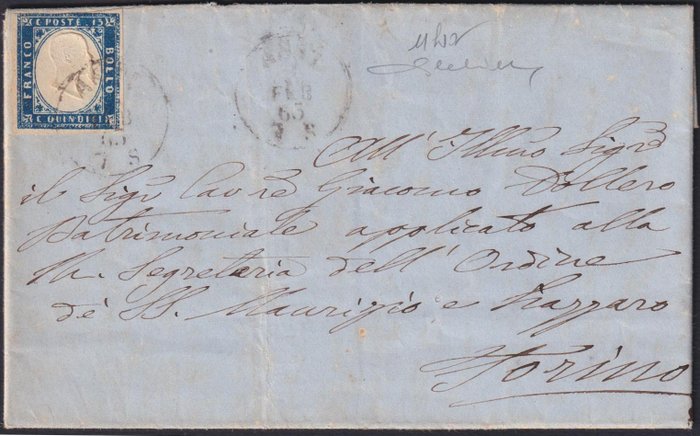 C. POSTE 15
FRANCO
BOLLO
C. QUINDICI
FEB
63
7 S
All' Illmo Sigr
il Sigr Cavre Giacomo Dollero
Patrimoniale applicato alla
Segretaria dell' Ordine
de' SS. Maurizio e Lazzaro
Torino